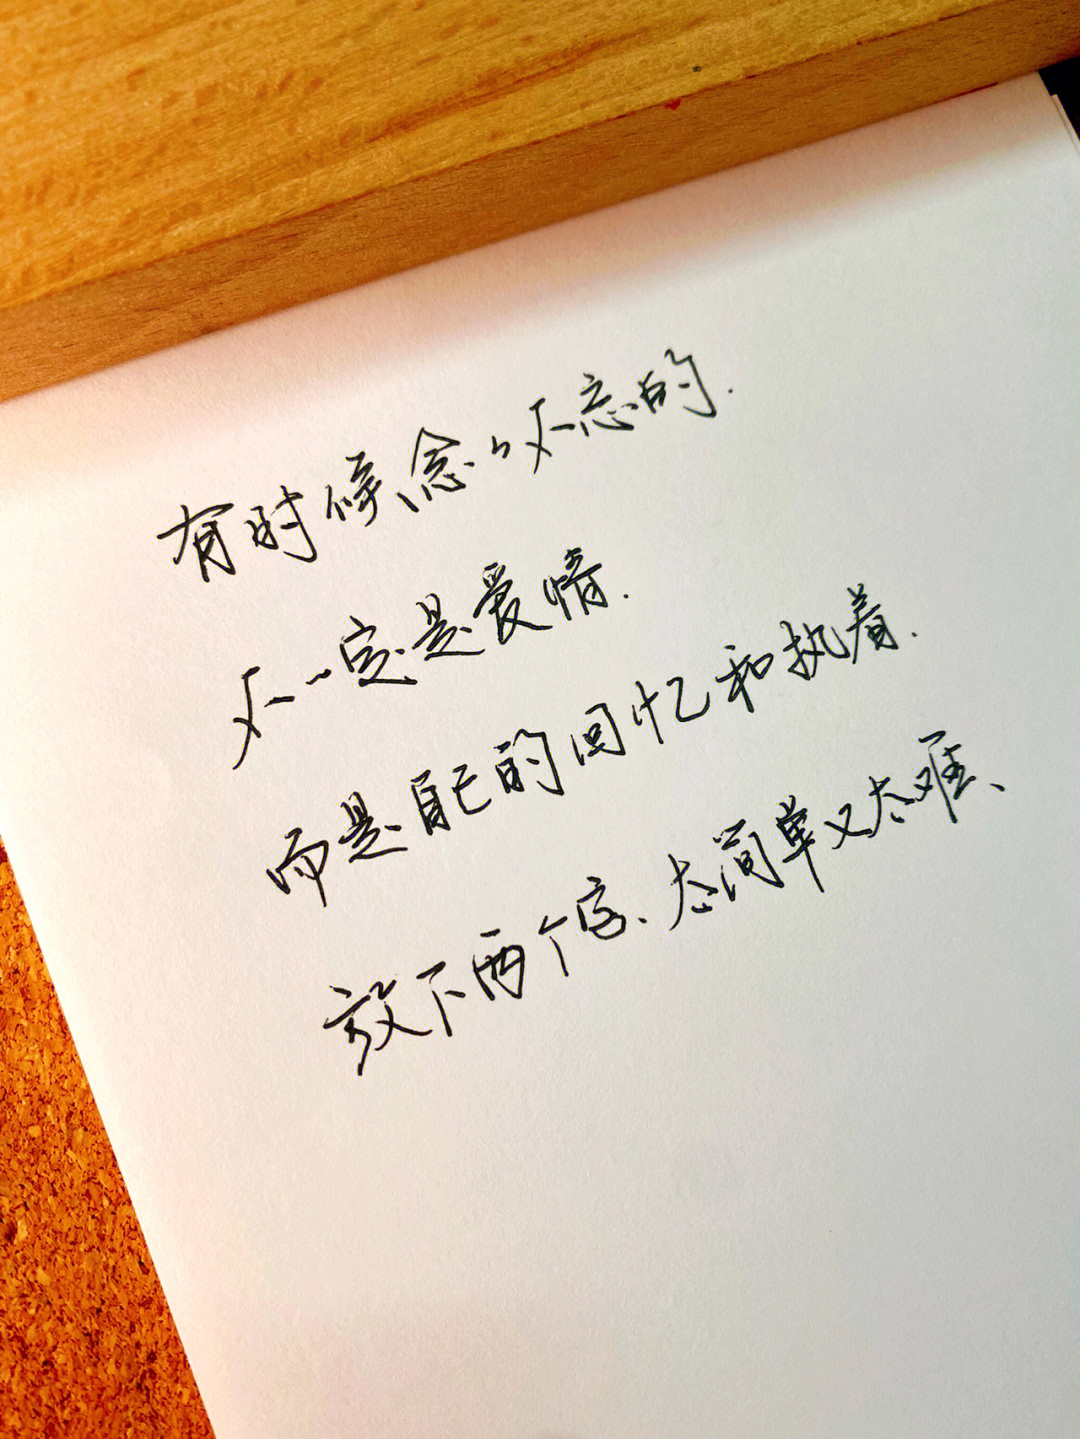 有时候念々不忘的.
不一定是爱情.
而是自己的回忆和执着.
放下两个字、太简单又太难、